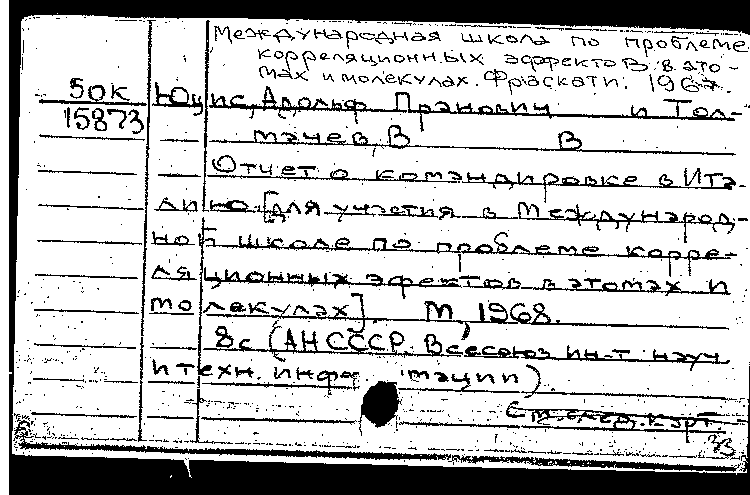 Международная школа по проблеме
корреляционных эффектов в ато-
мах и молекулах. Фраскати. 1967.
50к Юцис, Адольф Пранович и Тол-
15873 мачев, В В
Отчет о командировке в Ита-
лию. [для участия в Международ-
ной школе по проблеме корре-
ляционных эфектов в атомах и
молекулах]. М, 1968.
8с (АН СССР. Всесоюз ин-т науч
и техн. информации).
См. след. карт.
33